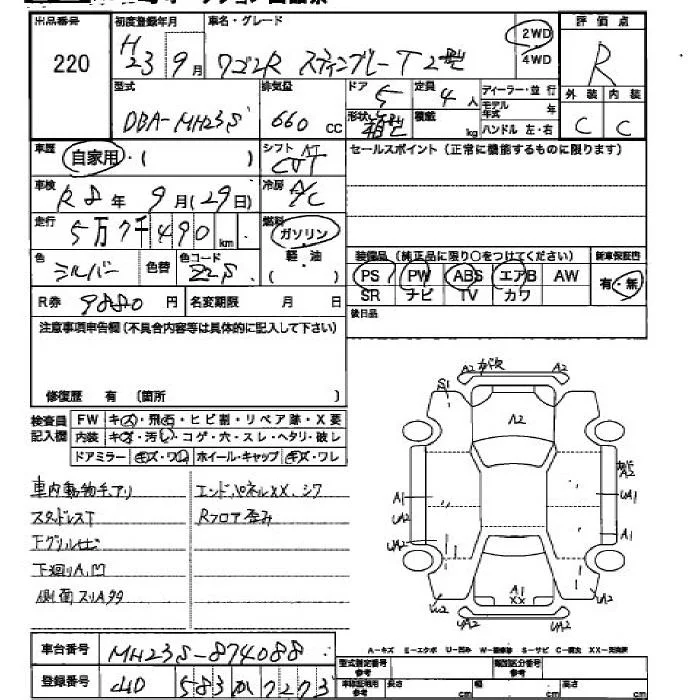 出品番号 初度登録年月 車名・グレード 評価点
220 H23 9月 ワゴンR スティングレー T 2型 2WD 4WD R
型式 排気量 ドア 定員 ディーラー・並行 外装 内装
DBA-MH23S 660 cc 5 4人 モデル年式 年 C C
形状 箱型 積載 kg ハンドル 左・右
車歴 自家用・( ) シフト AT CVT セールスポイント(正常に機能するものに限ります)
車検 R8年 9月(29日) 冷房 A/C
走行 5万7千490km 燃料 ガソリン
軽・油
( )
色 シルバー 色替 色コード Z2S
装備品(純正品に限り○をつけてください) 新車保証書
PS PW ABS エアB AW 有・無
SR ナビ TV カワ
R券 9880円 名変期限 月 日 後日品
注意事項申告欄(不具合内容等は具体的に記入して下さい)
修復歴 有 (箇所 )
検査員記入欄 FW キズ・飛石・ヒビ割・リペア跡・X要
内装 キズ・汚れ・コゲ・穴・スレ・ヘタリ・破レ
ドアミラー キズ・ワレ ホイール・キャップ キズ・ワレ
A2 ガ欠 A2
S1
A2
A2
A1 UA1
UA2 UA2
A1
XX
車内動物チアリ エンドパネルXX、シワ
スタッドレスT Rフロア歪み
下グリル仕
下廻りA、凹
側面スリA99
A-キズ E-エクボ U-凹み W-補修跡 S-サビ C-腐食 XX-交換済
車台番号 MH23S-874088
型式指定番号 参考 類別区分番号 参考
登録番号 583 7273
車検証明用 参考 長さ cm 幅 cm 高さ cm